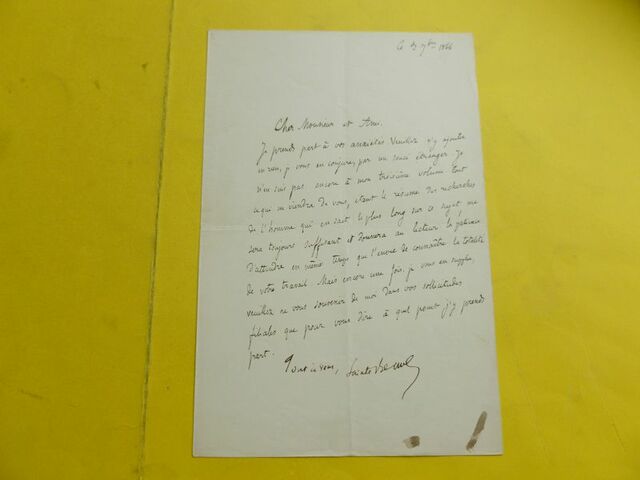 Ce 23 7bre 1866
Cher Monsieur et Ami,
Je prends part à vos anxiétés Veuillez n'y ajouter
en rien, je vous en conjure, par un souci étranger Je
n'en suis pas encore à mon troisième volume tout
ce qui me viendra de vous, étant le résumé des recherches
de l'homme qui en sait le plus long sur ce sujet me
sera toujours suffisant et donnera au lecteur la patience
d'attendre en même temps que l'envie de connaître la totalité
de votre travail. Mais encore une fois, je vous en supplie,
veuillez ne vous souvenir de moi dans vos sollicitudes
filiales que pour vous dire à quel point j'y prends
part.
Tout à vous, Sainte-Beuve